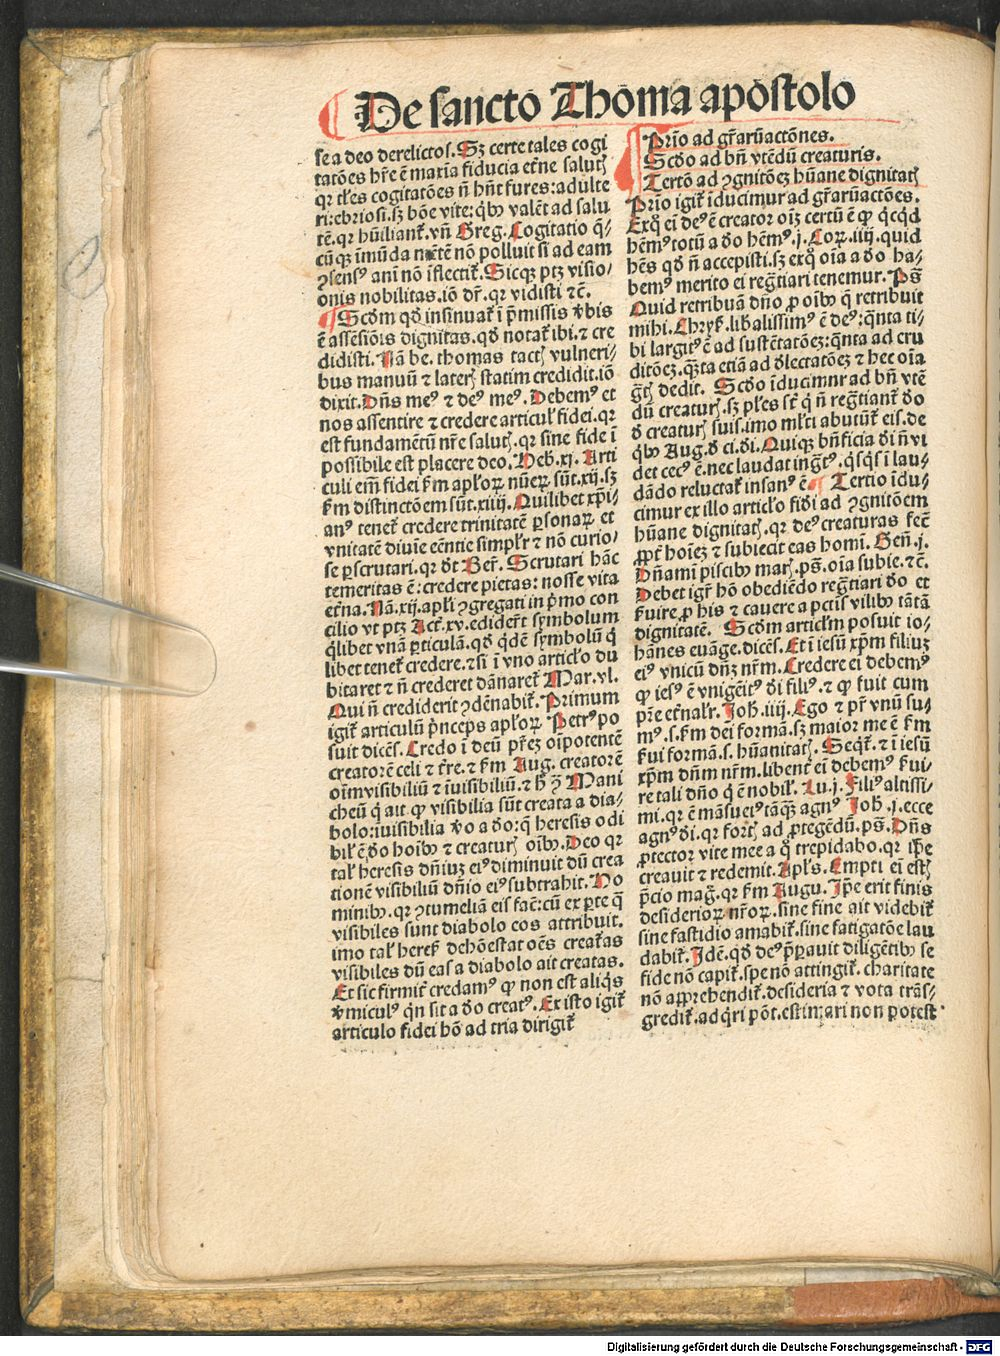 De sancto Thoma apostolo
se a deo derelictos. Sz certe tales cogi
tatões hr̄e ē maxīa fiducia etr̄ne saluti
qr tl̄es cogitatões n̄ hn̄t fures: adulte
ri: ebriosi. sz bōe vite: qbꝰ valēt ad salu
tē. qr hūiliant̄. vn̄ Greg. Cogitatio q̄⸗
cūqꝫ īmūda mētē nō polluit si ad eam
ꝯsensꝰ ani nō īflectit̄. Sicqꝫ ptꝫ visio⸗
onis nobilitas. iō dr̄. qr vidisti ⁊c̄.
Scd̄m qd̄ insinuat̄ ī p̄missis v̄bis
ē assēsiōis dignitas. qd̄ notat̄ ibi. ⁊ cre
didisti. Nā be. thomas tactis vulneri⸗
bus manuū ⁊ lateris statim credidit. iō
dixit. Dn̄s meꝰ ⁊ deꝰ meꝰ. Debemꝰ et
nos assentire ⁊ credere articul̄ fidei. qr
est fundamētū nr̄e salutis. qr sine fide ī
possibile est placere deo. Heb. xj. Arti
culi em̄ fidei s̄m apl̄oꝝ nūeꝝ sūt. xij. sꝫ
s̄m distinctōem sūt. xiiij. Quilibet xp̄i⸗
anꝰ tenet̄ credere trinitatē ꝑsonaꝝ et
vnitatē diuīe eēntie simpl̄r ⁊ nō curio⸗
se ꝑscrutari. qr d̄t Ber̄. Scrutari hāc
temeritas ē: credere pietas: nosse vita
etr̄na. Nā. xij. apl̄i ꝯgregati in pͥmo con
cilio vt ptꝫ Act̄. xv. ediderūt symbolum
q̄libet vnā ꝑticulā. qd̄ qͥdē symbolū q̄
libet tenet̄ credere. ⁊ si ī vno articl̄o du
bitaret ⁊ n̄ crederet dānaret̄ Mar. vl.
Qui n̄ crediderit ꝯdēnabit̄. Primum
igit̄ articulū pͥnceps apl̄oꝝ Petrꝰ po
suit dicēs. Credo ī deū pr̄eꝫ oīpotentē
creatorē celi ⁊ t̄re. ⁊ s̄m Aug. creatorē
oīm visibiliū ⁊ īuisibiliū. ⁊ h̄ ꝯ̄ Mani
cheū q̄ ait ꝙ visibilia sūt creata a dia⸗
bolo: iuisibilia v̄o a d̄o: q̄ heresis odi
bil̄ ē d̄o hoībꝰ ⁊ creaturis oībꝰ. Deo qr
tal̄ heresis dn̄iuꝫ eiꝰ diminuit dū crea
tionē visibiliū dn̄io eiꝰ subtrahit. Ho
minibꝰ. qr ꝯtumeliā eis faē: cū ex ꝑte q̄
visibiles sunt diabolo eos attribuit.
imo tal̄ heres̄ dehōestat oēs creat̄as
visibiles dū eas a diabolo ait creatas.
Et sic firmit̄ credamꝰ ꝙ non est aliqͥs
v̄miculꝰ qͥn sit a d̄o creatꝰ. Ex isto igit̄
articulo fidei hō ad tria dirigit̄
Prīo ad gr̄aꝝactōnes.
Scd̄o ad bn̄ vtēdū creaturis.
Tertō ad ꝯgnitōeꝫ hūane dignitatis
Prīo igit̄ īducimur ad gr̄aꝝactōes.
Exq̄ ei deꝰ ē creator oīꝫ certū ē ꝙ qͥcqͥd
hēmꝰ totū a d̄o hēmꝰ. j. Coꝝ. iiij. quid
hēs qd̄ n̄ accepisti. sꝫ exq̄ oīa a d̄o ha⸗
bemꝰ merito ei regr̄tiari tenemur. Ps̄
Quid retribuā dn̄o ꝓ oībꝰ q̄ retribuit
mihi. Chrys. lib̄alissimꝰ ē deꝰ: qͣnta ti⸗
bi largitꝰ ē ad sustētatōeꝫ: qͣnta ad eru
ditōeꝫ. qͣta etiā ad d̄lectatōeꝫ ⁊ hec oīa
gr̄tis dedit. Scd̄o īducimur ad bn̄ vtē
dū creaturis. sꝫ pl̄es st̄ q̄ n̄ regr̄tiant̄ d̄o
d̄ creaturis suis. imo ml̄ti abutūt̄ eis. de
qͥbꝰ Aug. d̄ ci. d̄i. Quisqꝫ bn̄ficia d̄i n̄ vi
det cecꝰ ē. nec laudat ingr̄tꝰ. qͥsqͥs ī lau⸗
dādo reluctat̄ insanꝰ ē Tertio īdu⸗
cimur ex illo articl̄o fidei ad ꝯgnitōem
hūane dignitatis. qr deꝰ creaturas fec̄
ꝓpt̄ hoīeꝫ ⁊ subiecit eas homī. Gen̄. j.
Dn̄amī piscibꝰ maris. ps̄. oīa subie. ⁊c̄.
Debet igr̄ hō obediēdo regr̄tiari d̄o et
s̄uire ꝓ his ⁊ cauere a pctīs vilibꝰ tātā
dignitatē. Scd̄m articl̄m posuit io⸗
hānes euāge. dicēs. Et ī iesū xp̄m filiuꝫ
eiꝰ vnicū dn̄ꝫ nr̄m. Credere ei debemꝰ
ꝙ iesꝰ ē vnigēitꝰ d̄i filiꝰ. ⁊ ꝙ fuit cum
pr̄e etr̄nal̄r. Joh̄. iiij. Ego ⁊ pr̄ vnū su⸗
mꝰ. s. s̄m dei formā. sꝫ maior me ē s̄m
s̄ui formā. s. hūanitatis. Seqͥt̄. ⁊ ī iesū
xp̄m dn̄m nr̄m. libent̄ ei debemꝰ s̄ui⸗
re tali dn̄o q̄ ē nobil̄. Lu. j. Filiꝰ altissi⸗
mi. qr ē māsuetꝰ tāqͣꝫ agnꝰ Joh̄. j. ecce
agnꝰ d̄i. qr fortis ad ꝓtegēdū. ps̄. Dn̄s
ꝓtector vite mee a q̄ trepidabo. qr ip̄e
creauit ⁊ redemit. Apl̄s. Empti ei estis
pͥcio maḡ. qr s̄m Augu. Ip̄e erit finis
desiderioꝝ nr̄oꝝ. sine fine ait videbit̄
sine fastidio amabit̄. sine fatigatōe lau
dabit̄. Idē. qd̄ deꝰ p̄ꝑauit diligētibꝰ se
fide nō capit̄. spe nō attingit̄. charitate
nō apprehendit̄. desideria ⁊ vota trās⸗
gredit̄. adqͥri pōt. estimari non potest
Digitalisierung gefördert durch die Deutsche Forschungsgemeinschaft - DFG